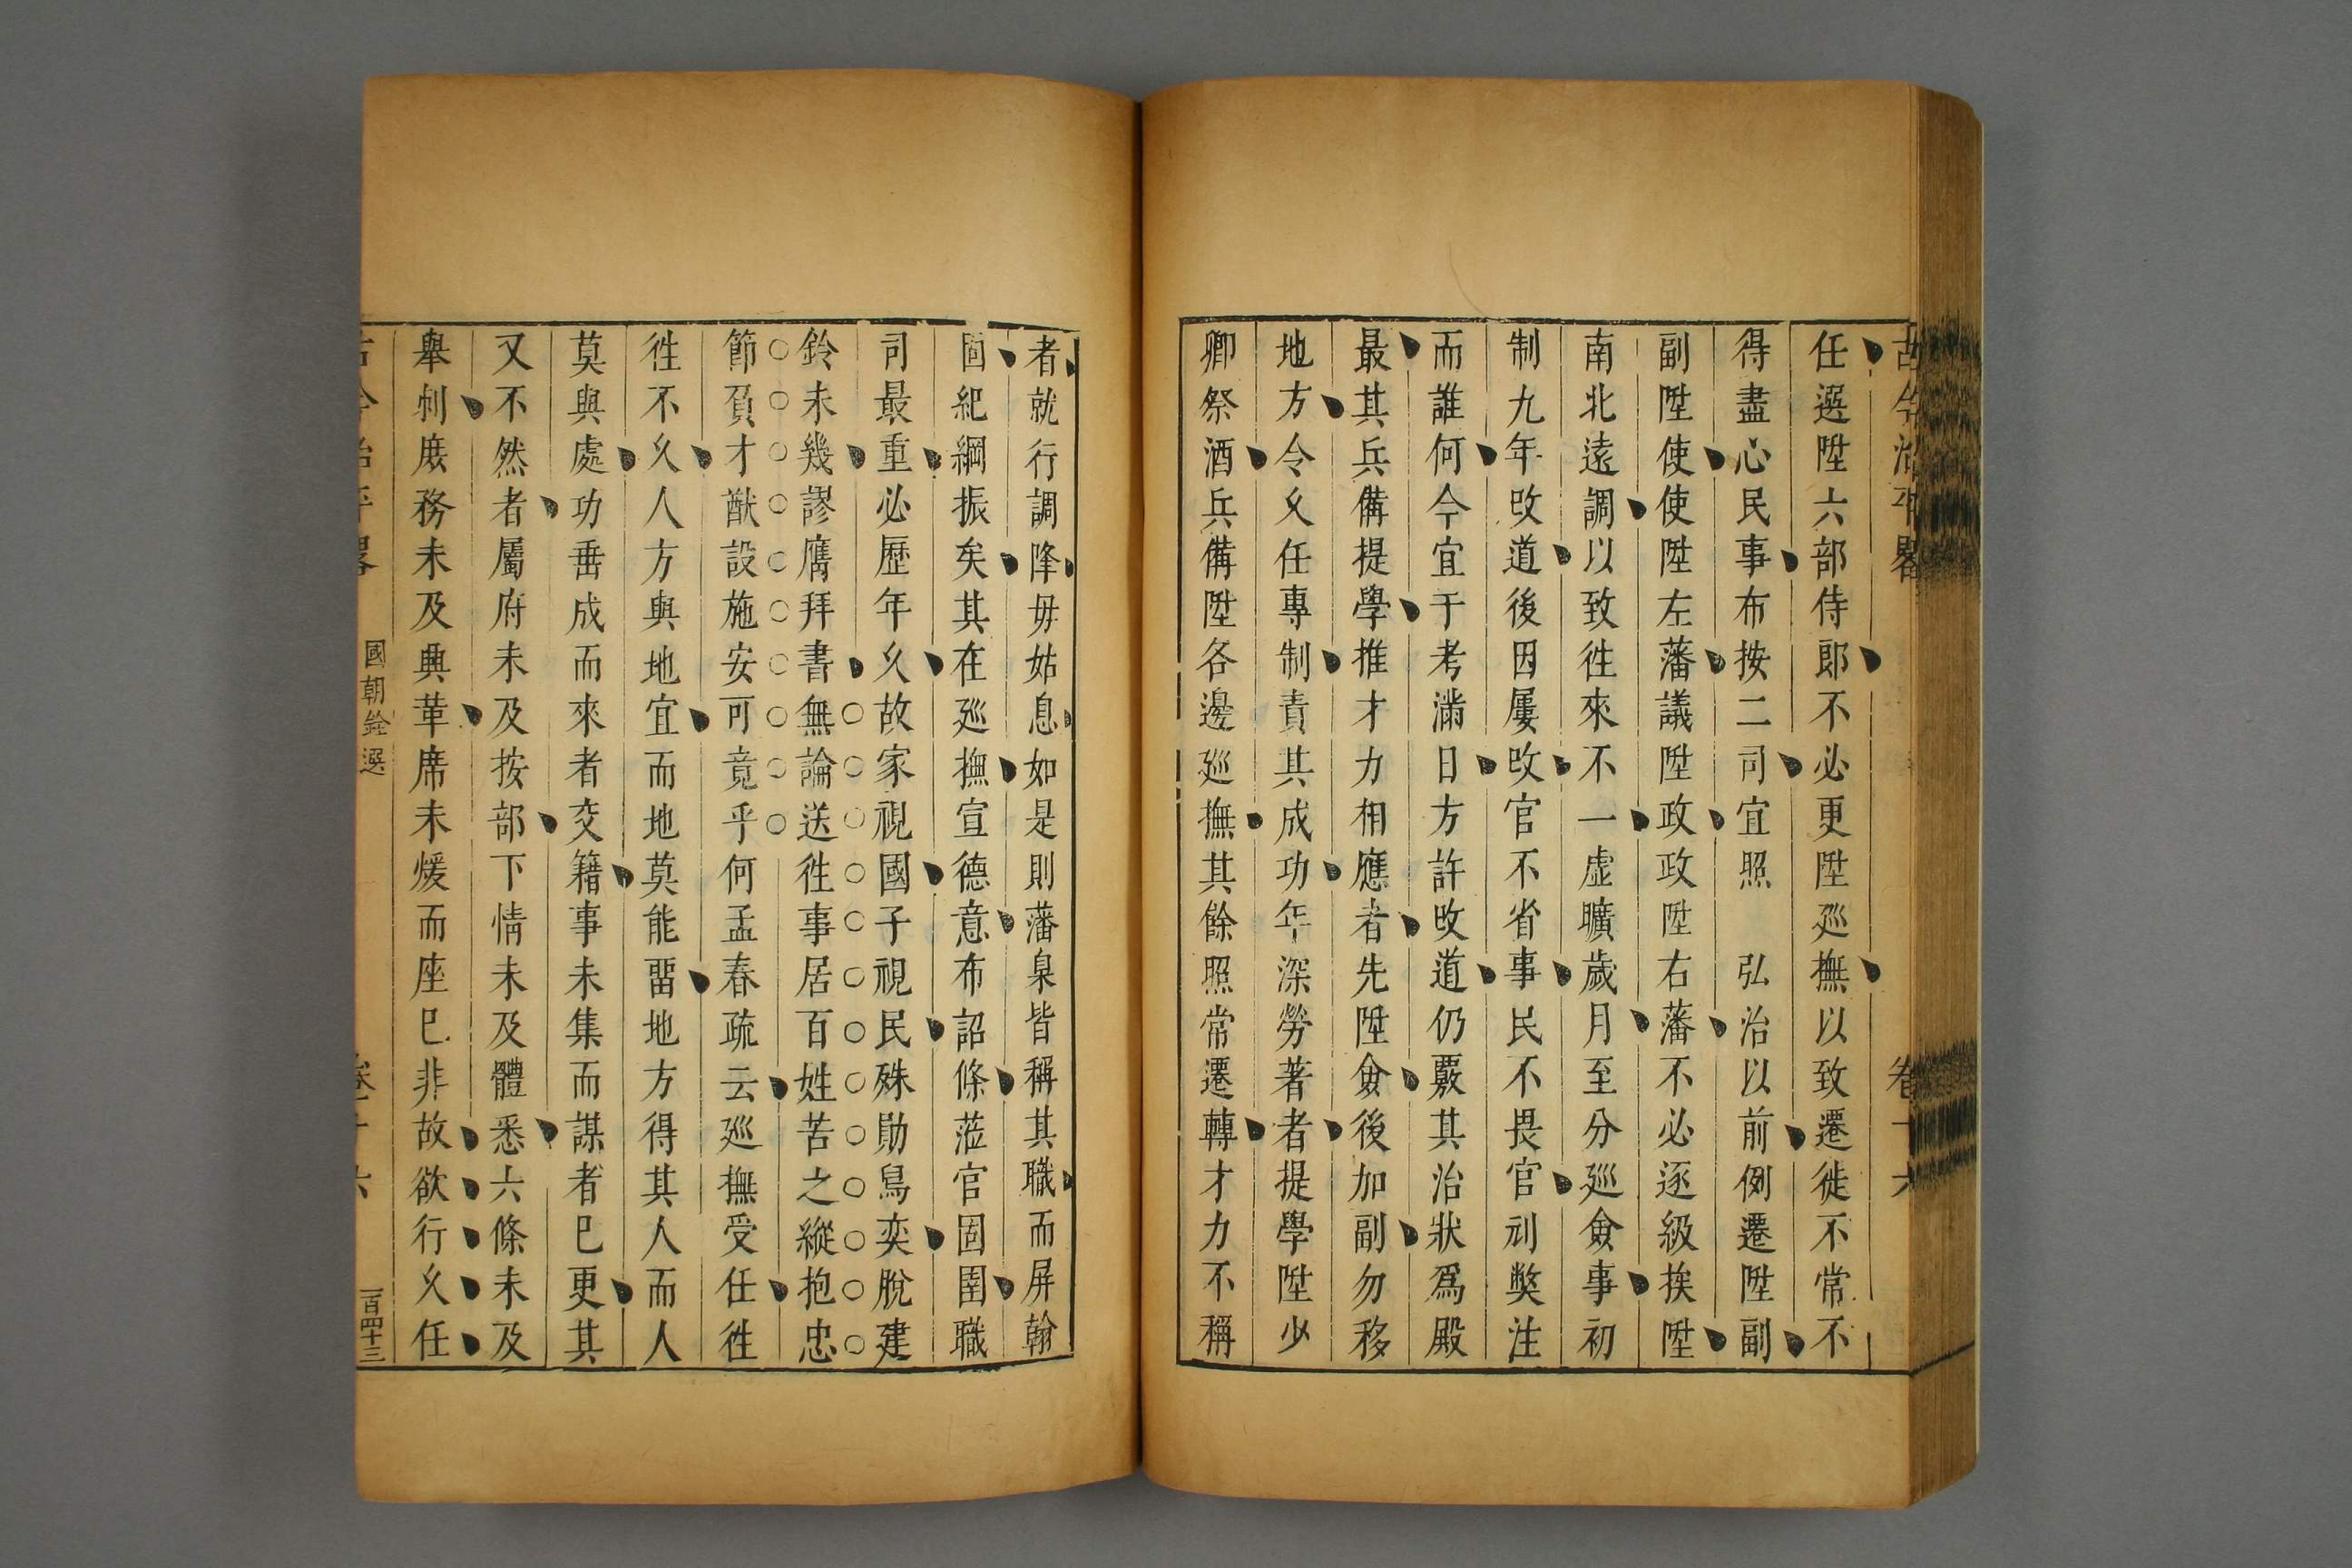 古今治平畧 卷十六
任選陞六部侍郎不必更陞廵撫以致遷徙不常不
得盡心民事布按二司宜照 弘治以前例遷陞副
副陞使使陞左藩議陞政政陞右藩不必逐級挨陞
南北遠調以致徃來不一虛曠歲月至分廵僉事初
制九年攺道後因屢攺官不省事民不畏官刓獘注
而誰何今宜于考滿日方許攺道仍覈其治狀爲殿
最其兵備提學推才力相應者先陞僉後加副勿移
地方令乆任專制責其成功年深勞著者提學陞少
卿祭酒兵備陞各邊廵撫其餘照常遷轉才力不稱
者就行調降毋姑息如是則藩臬皆稱其職而屏翰
固紀綱振矣其在廵撫宣德意布詔條蒞官固圉職
司最重必歷年乆故家視國子視民殊勛烏奕脫建
鈴未幾謬膺拜書無論送徃事居百姓苦之縱抱忠
節負才猷設施安可竟乎何孟春疏云廵撫受任徃
徃不乆人方與地宜而地莫能畱地方得其人而人
莫與處功垂成而來者交籍事未集而謀者巳更其
又不然者屬府未及按部下情未及體悉六條未及
舉刺庶務未及興革席未煖而座巳非故欲行乆任
古今治平畧 國朝銓選 卷十六 一百四十三